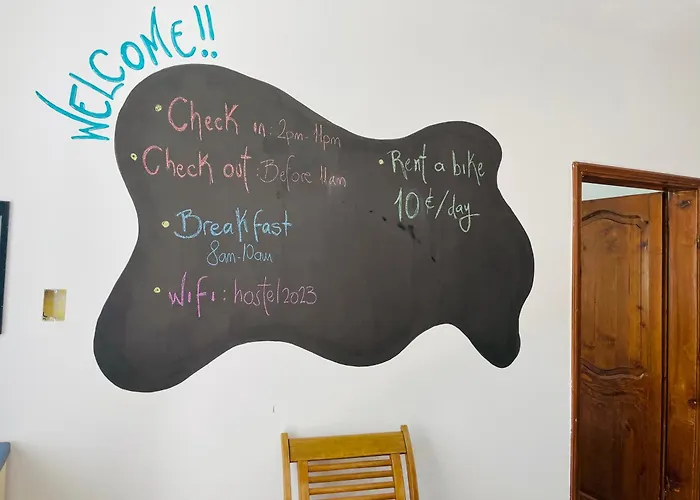 WELCOME!!
Check in: 2pm-11pm
Check out: Before 11am
Breakfast
8am-10am
Wifi: hostel2023
Rent a bike
10€/day